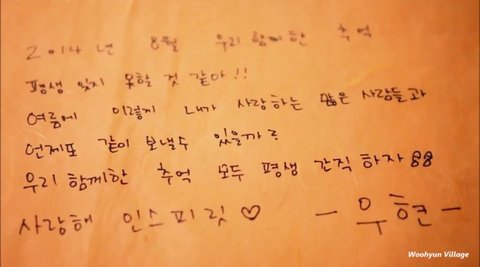 2014년 8월 우리 함께한 추억
평생 잊지 못할 것 같아!!
여름에 이렇게 내가 사랑하는 많은 사람들과
언제또 같이 보낼수 있을까?
우리 함께한 추억 모두 평생 간직하자 88
사랑해 인스피릿♡ - 우현 -
Woohyun Village